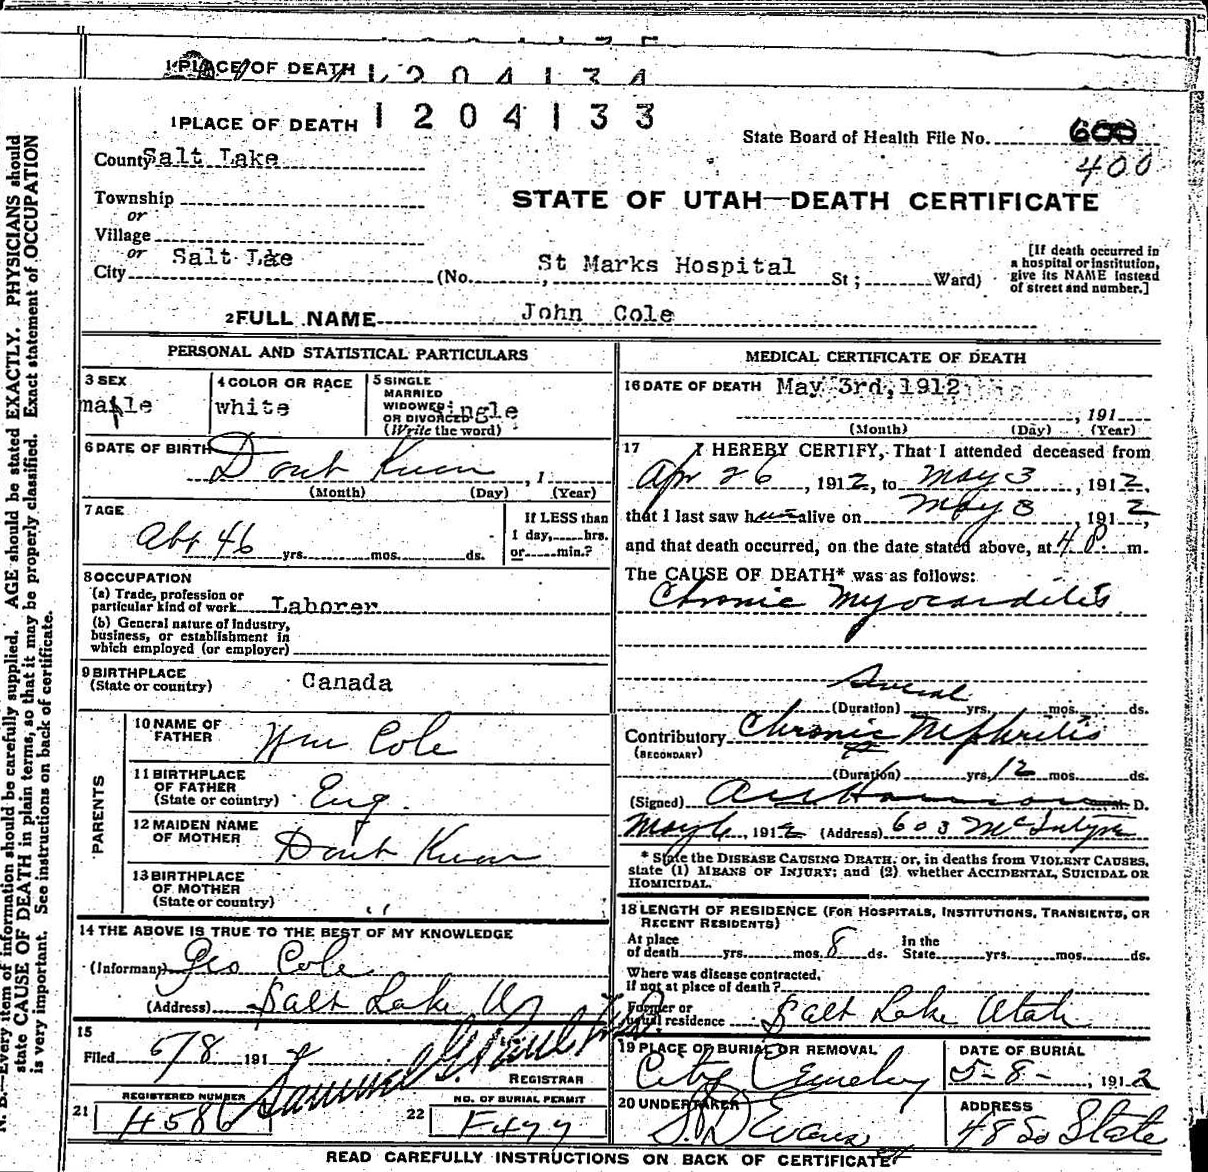 1 PLACE OF DEATH 1 2 0 4 1 3 4
1 PLACE OF DEATH 1 2 0 4 1 3 3
State Board of Health File No. 600
400
County Salt Lake
STATE OF UTAH—DEATH CERTIFICATE
Township
or
Village
or
City Salt Lke (No. St Marks Hospital St; Ward)
[If death occurred in
a hospital or institution,
give its NAME instead
of street and number.]
2 FULL NAME John Cole
PERSONAL AND STATISTICAL PARTICULARS
3 SEX
male
4 COLOR OR RACE
white
5 SINGLE
MARRIED
WIDOWED
OR DIVORCED
(Write the word)
single
6 DATE OF BIRTH
Dont Know , 1
(Month) (Day) (Year)
7 AGE
Abt 46 yrs. mos. ds.
If LESS than
1 day, hrs.
or min.?
8 OCCUPATION
(a) Trade, profession or
particular kind of work Laborer
(b) General nature of industry,
business, or establishment in
which employed (or employer)
9 BIRTHPLACE
(State or country) Canada
PARENTS
10 NAME OF
FATHER Wm Cole
11 BIRTHPLACE
OF FATHER
(State or country) Eng.
12 MAIDEN NAME
OF MOTHER Dont Know
13 BIRTHPLACE
OF MOTHER
(State or country) "
14 THE ABOVE IS TRUE TO THE BEST OF MY KNOWLEDGE
(Informant) Geo Cole
(Address) Salt Lake
15
Filed 5/8 191 2
REGISTRAR
21 REGISTERED NUMBER
4586
22 NO. OF BURIAL PERMIT
F477
MEDICAL CERTIFICATE OF DEATH
16 DATE OF DEATH May 3rd, 1912
, 191
(Month) (Day) (Year)
17 I HEREBY CERTIFY, That I attended deceased from
Apr 26 , 1912, to May 3 , 1912,
that I last saw him alive on May 3 , 1912,
and that death occurred, on the date stated above, at 4 P. m.
The CAUSE OF DEATH* was as follows:
Chronic Myocarditis
Several
(Duration) yrs. mos. ds.
Contributory Chronic Nephritis
(SECONDARY)
(Duration) yrs. 12 mos. ds.
(Signed) M. D.
May 6, 1912 (Address) 603 McIntyre
* State the DISEASE CAUSING DEATH, or, in deaths from VIOLENT CAUSES,
state (1) MEANS OF INJURY; and (2) whether ACCIDENTAL, SUICIDAL OR
HOMICIDAL.
18 LENGTH OF RESIDENCE (FOR HOSPITALS, INSTITUTIONS, TRANSIENTS, OR
RECENT RESIDENTS)
At place
of death yrs. mos. 8 ds.
In the
State yrs. mos. ds.
Where was disease contracted,
if not at place of death?
Former or
usual residence Salt Lake Utah
19 PLACE OF BURIAL OR REMOVAL
City Cemetery
DATE OF BURIAL
5-8- , 1912
20 UNDERTAKER
S. D Evans
ADDRESS
48 So State
READ CAREFULLY INSTRUCTIONS ON BACK OF CERTIFICATE
N. B.—Every item of information should be carefully supplied. AGE should be stated EXACTLY. PHYSICIANS should
state CAUSE OF DEATH in plain terms, so that it may be properly classified. Exact statement of OCCUPATION
is very important. See instructions on back of certificate.